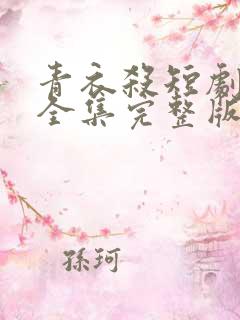 青衣殺短劇
全集完整版
孫珂